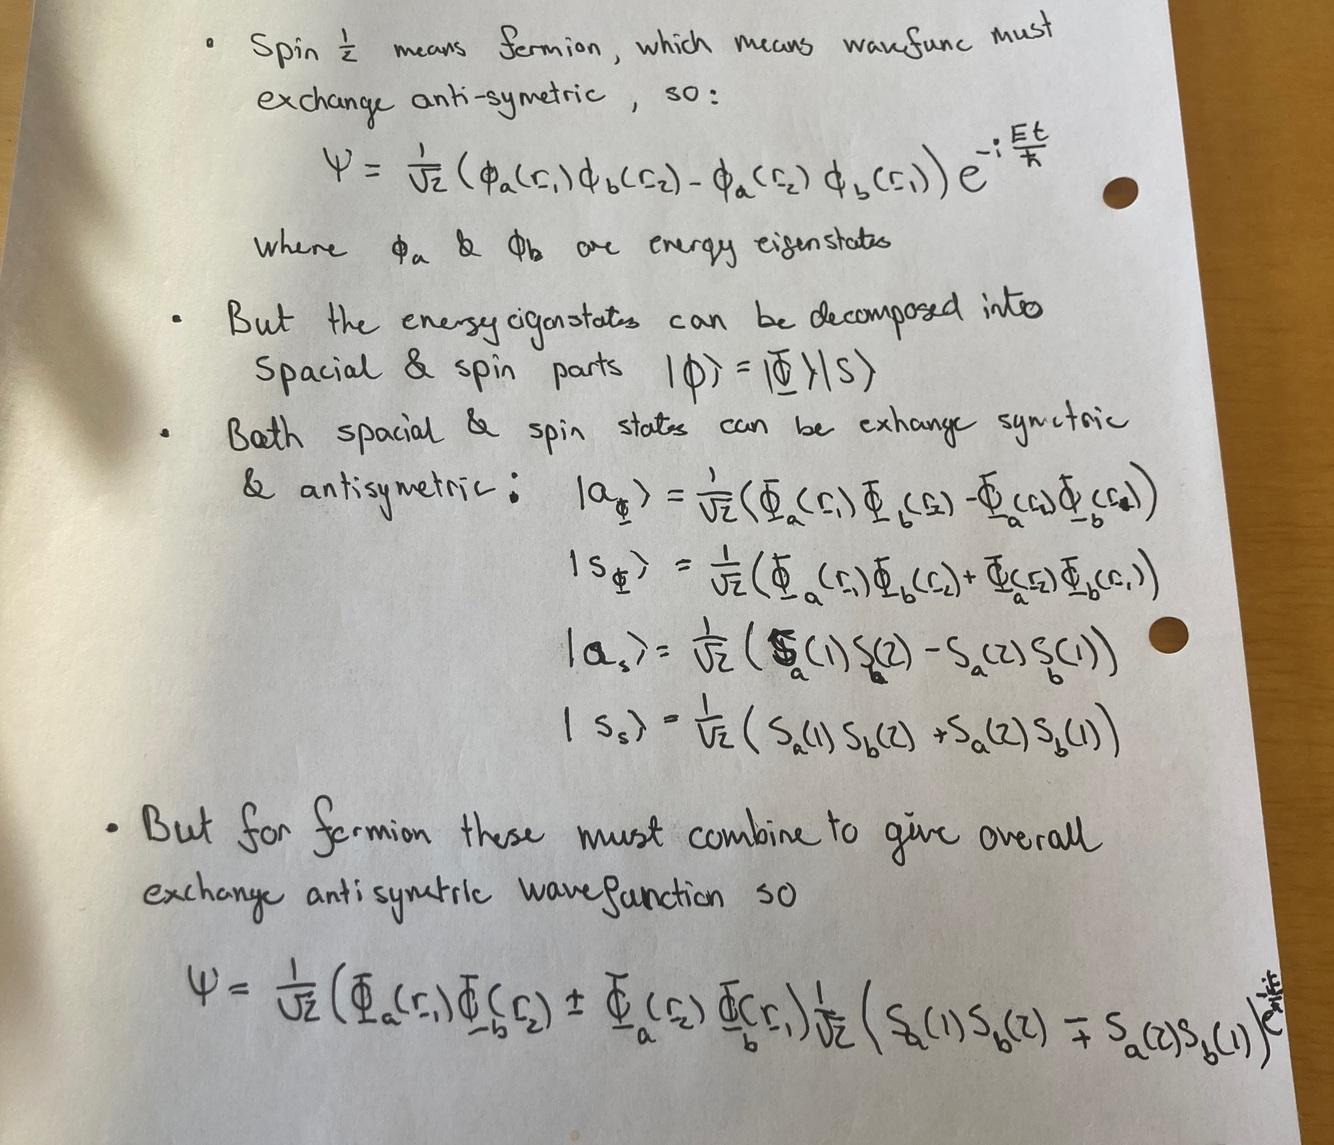 • Spin ½ means fermion, which means wavefunc must
exchange anti-symetric, so:
Ψ = 1/√2 (ϕₐ(r₁)ϕ_b(r₂) - ϕₐ(r₂) ϕ_b(r₁)) e^(-i Et/ħ)
where ϕₐ & ϕ_b are energy eigenstates
• But the energy eigenstates can be decomposed into
spacial & spin parts |ϕ⟩ = |Φ⟩|S⟩
• Both spacial & spin states can be exhange symetric
& antisymetric: |a_Φ⟩ = 1/√2 (Φₐ(r₁)Φ_b(r₂) - Φₐ(r₂)Φ_b(r₁))
|s_Φ⟩ = 1/√2 (Φₐ(r₁)Φ_b(r₂) + Φₐ(r₂)Φ_b(r₁))
|a_s⟩ = 1/√2 (Sₐ(1)S_b(2) - Sₐ(2)S_b(1))
|s_s⟩ = 1/√2 (Sₐ(1)S_b(2) + Sₐ(2)S_b(1))
• But for fermion these must combine to give overall
exchange antisymetric wavefunction so
Ψ = 1/√2 (Φₐ(r₁)Φ_b(r₂) ± Φₐ(r₂)Φ_b(r₁)) 1/√2 (Sₐ(1)S_b(2) ∓ Sₐ(2)S_b(1)) e^(-iEt/ħ)